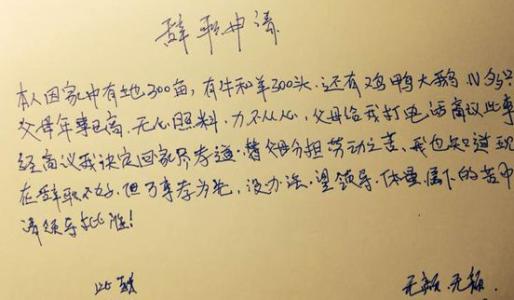 辞职申请
本人因家中有土地300亩,有牛和羊300头.还有鸡鸭大鹅
父母年事已高.无心照料,力不从心,父母给我打电话商议此事
经商议我决定回家尽孝道.替父母分担劳动之苦.我也知道现
在辞职不好.但百事孝为先,没办法.望领导.体量属下的苦中
请领导批准!
此致